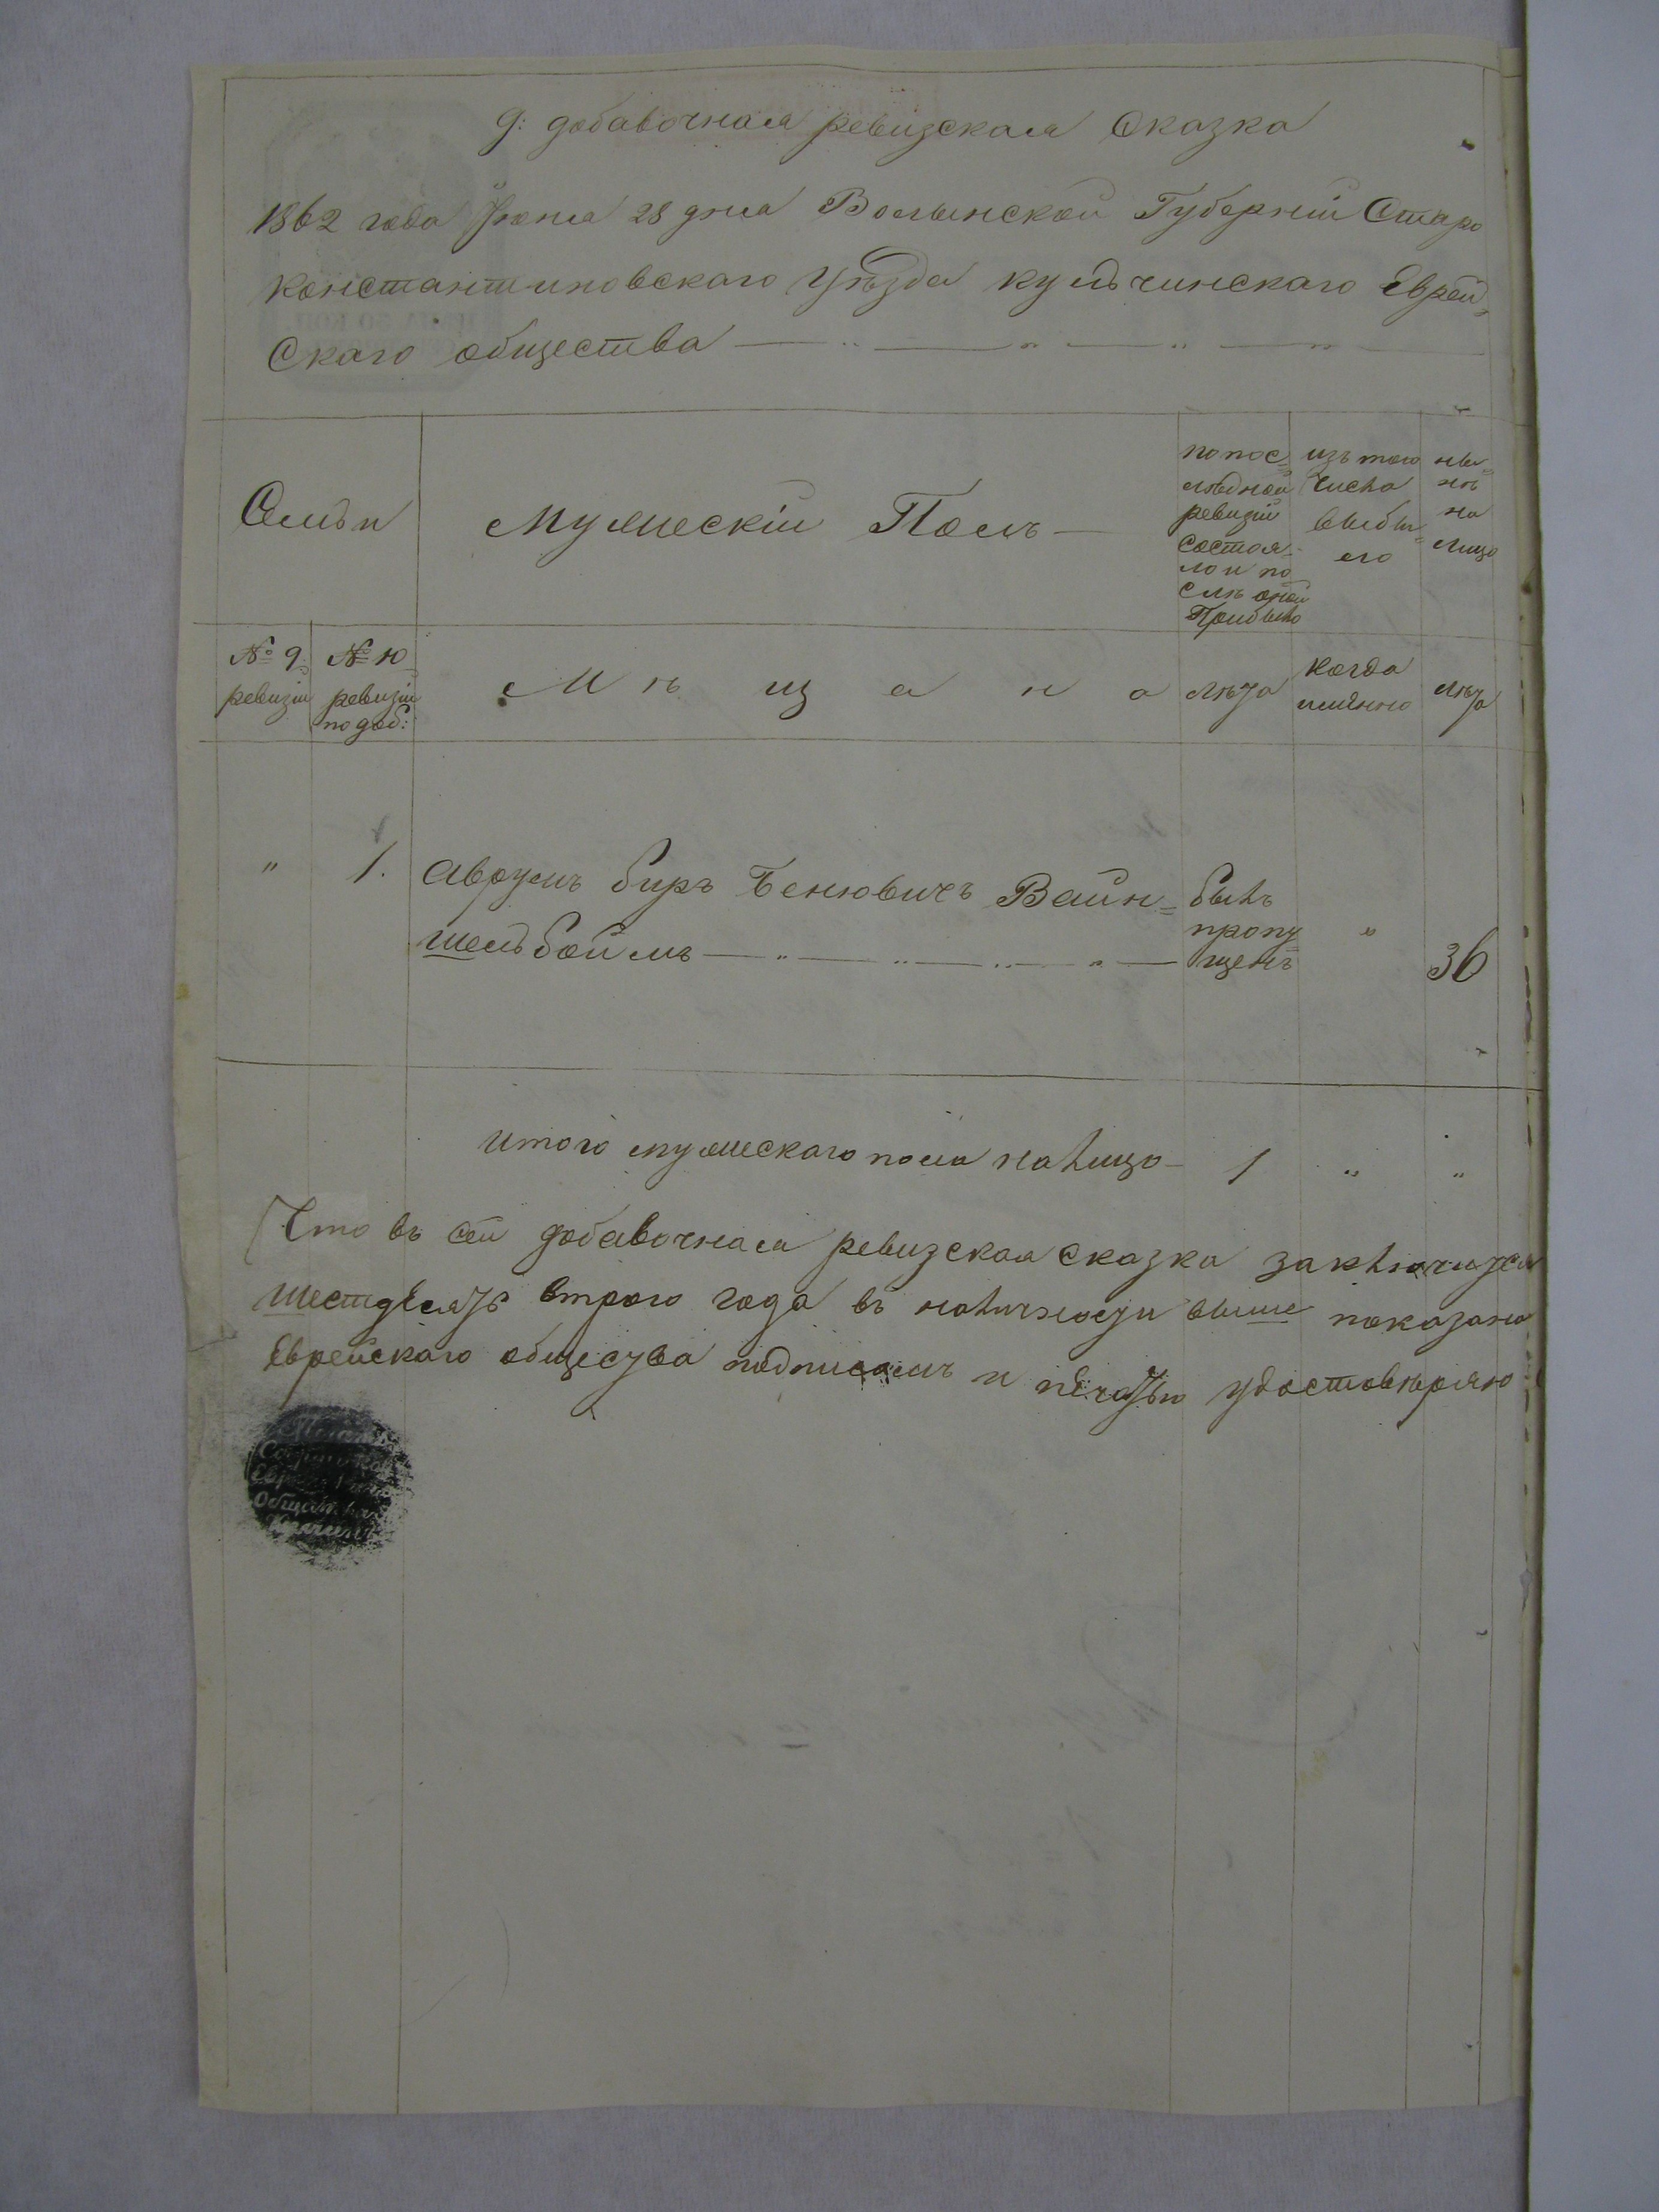 д: добавочная ревизская Сказка
1862 года Июня 28 дня Волынской Губерніи Старо
константиновскаго Уѣзда кульчинскаго Еврей,
Скаго общества
Семьи
Мужескій Полъ
по пос=
лѣдной
ревизіи
состоя=
ло и по
слѣ оной
Прибыло
изъ того
числа
выбы=
ло
ны=
нѣ
на
лицо
№ 9
ревизіи
№ 10
ревизіи
по доб:
М ѣ щ а н а
лѣта
когда
именно
лѣта
" 1. Аврумъ беръ Бенювичъ Вайн=
шельбоймъ
былъ
пропу
щенъ
"
36
итого мужескаго пола налицо 1 " "
Что въ сей добавочная ревизская сказка заключится
шестдесятъ втрого года въ наличности выше показано
Еврейскаго общества подписомъ и печатью удостовѣряю
Общества